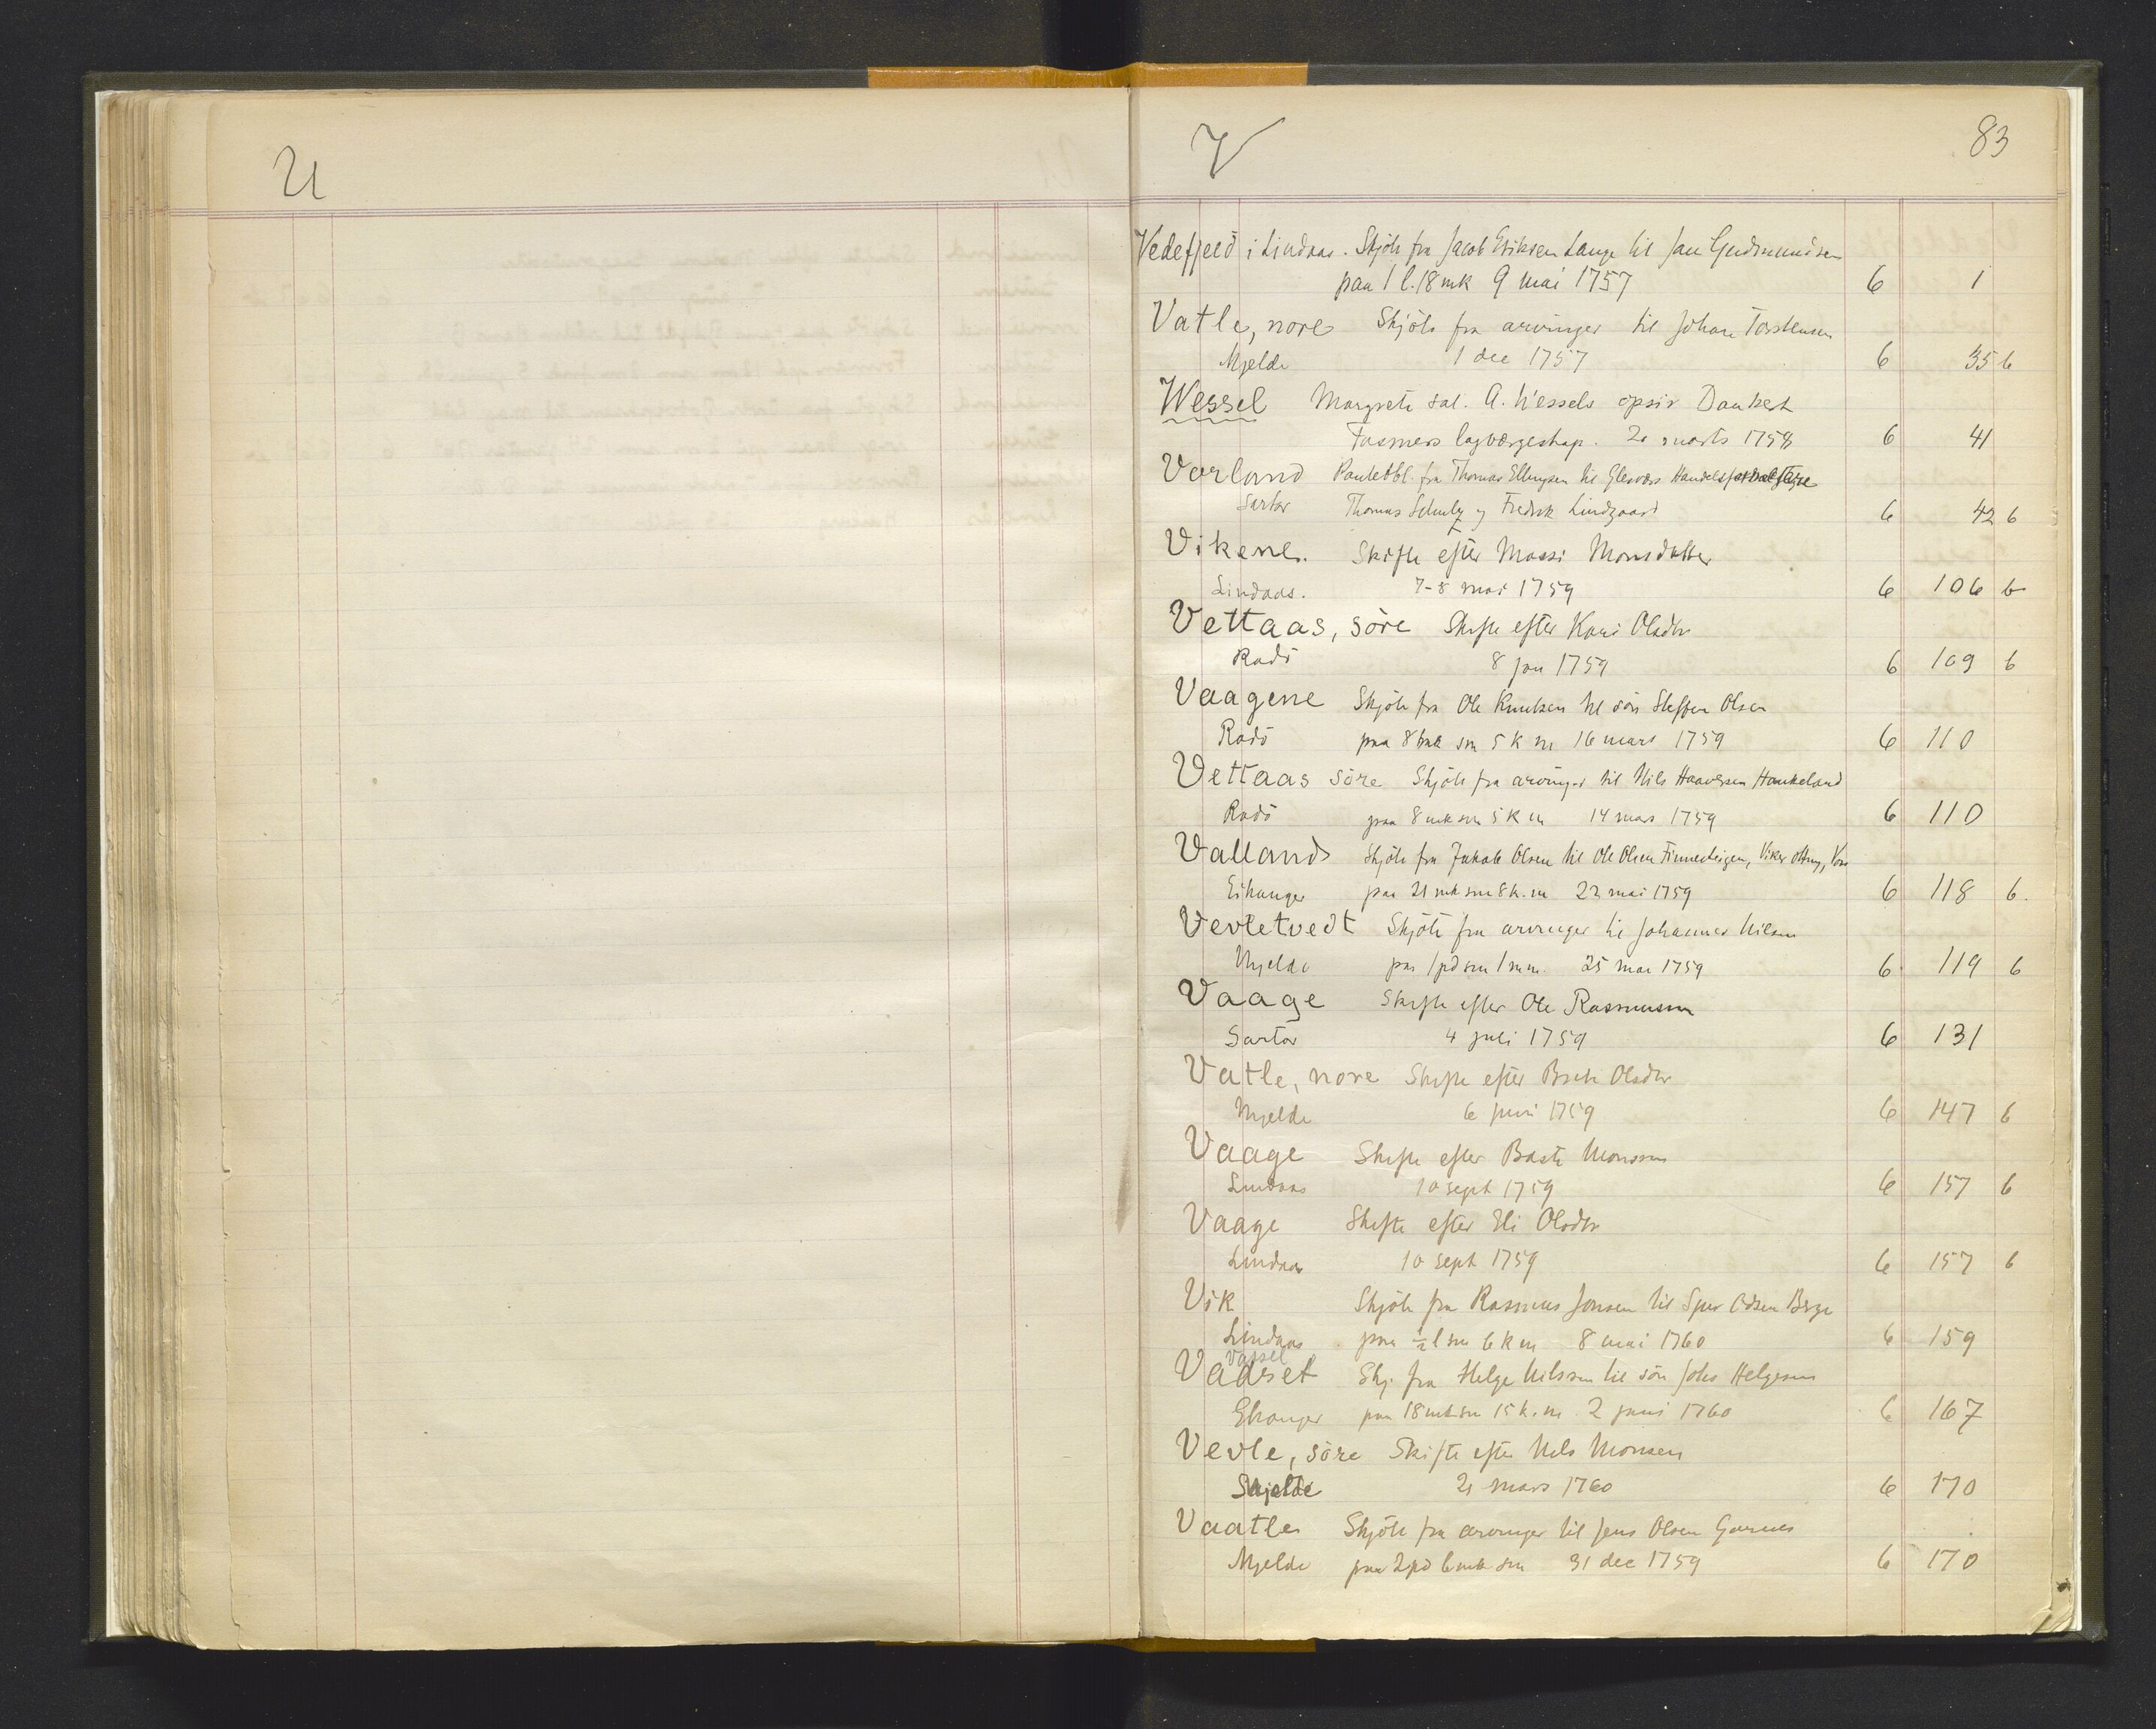 U
V
83
Vedefjeld i Lindaas. Skjöte fra Jacob Eriksen Lange til Jan Gudmundsen
paa 1 l. 18 mk 9 mai 1757 6 1
Vatle, nore Skjöte fra arvinger til Johan Torstensen
Mjelde 1 dec 1757 6 35 b
Wessel Margrete sal. A. Wessels opsir Dankert
Fasmers lagværgeskap. 20 marts 1758 6 41
Vorland Panteobl. fra Thomas Ellingsen til Glesvær Handels
Sartor Thomas Schultz og Fredrik Lindgaard 6 42 b
Vikene. Skifte efter Massi Monsdatter
Lindaas. 7-8 mai 1759 6 106 b
Vettaas, söre Skifte efter Kari Olsdtr
Radö 8 jan 1759 6 109 b
Vaagene Skjöte fra Ole Knutsen til sön Steffen Olsen
Radö paa 8 mk sm 5 k m 16 mars 1759 6 110
Vettaas söre Skjöte fra arvinger til Nils Haaversen Haukeland
Radö paa 8 mk sm 5 k m 14 mars 1759 6 110
Valland Skjöte fra Jakob Olsen til Ole Olsen Finnesteigen, Viker ottng, Vos
Eikanger paa 21 mk sm 8 k. m 22 mai 1759 6 118 b.
Vevletvedt Skjöte fra arvinger til Johannes Nilsen
Mjelde paa 1 pd sm 1 m m. 25 mai 1759 6 119 b
Vaage Skifte efter Ole Rasmussen
Sartor 4 juli 1759 6 131
Vatle, nore Skifte efter Brite Olsdtr
Mjelde 6 juni 1759 6 147 b
Vaage Skifte efter Baste Monsen
Lindaas 10 sept 1759 6 157 b
Vaage Skifte efter Eli Olsdtr
Lindaas 10 sept 1759 6 157 b
Vik Skjöte fra Rasmus Jonsen til Sjur Odsen Berge
Lindaas paa ½ l sm 6 k m 8 mai 1760 6 159
Vassel
Vaarset Skj. fra Helge Nilssen til sön Johs Helgesen
Ekanger paa 18 mk sm 15 k. m. 2 juni 1760 6 167
Vevle, söre Skifte efter Nils Monsen
Mjelde 21 mars 1760 6 170
Vaatle Skjöte fra arvinger til Jens Olsen Garnes
Mjelde paa 2 pd 6 mk sm 31 dec 1759 6 170